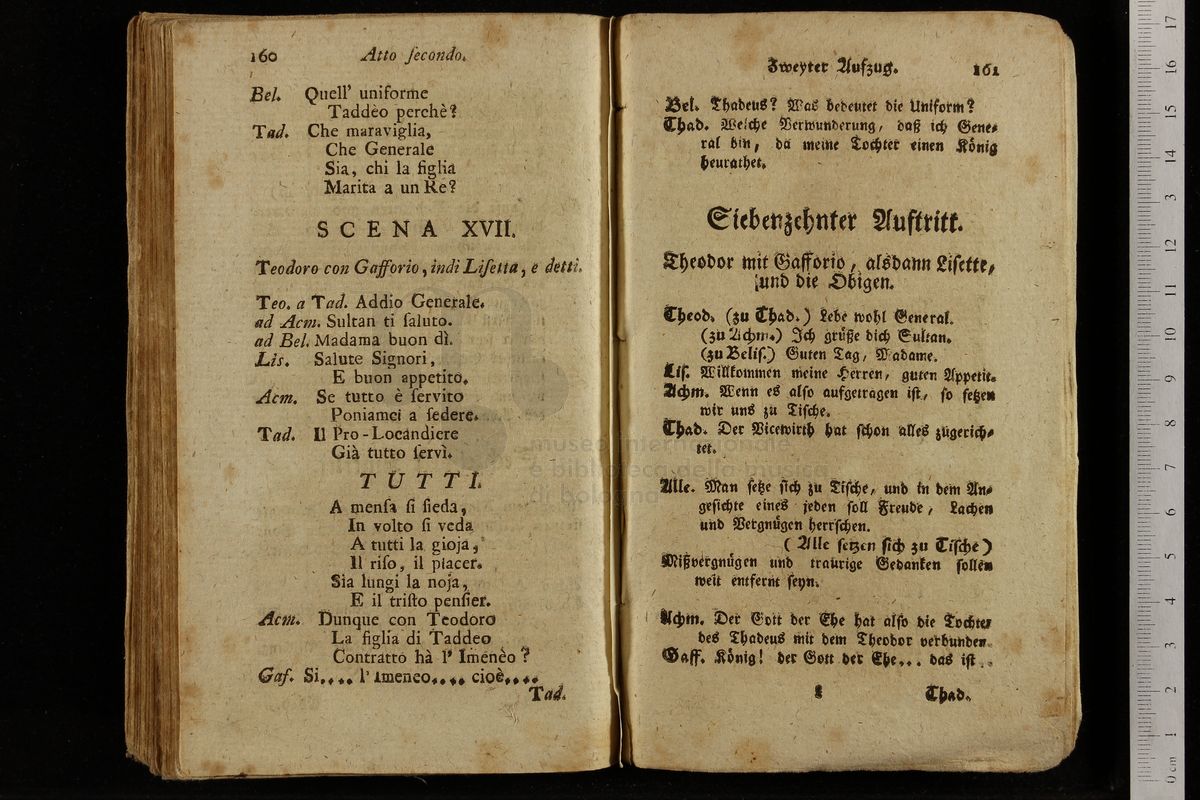 160 Atto ſecondo.
Bel. Quell' uniforme
Taddèo perchè?
Tad. Che maraviglia,
Che Generale
Sia, chi la figlia
Marita a un Re?
SCENA XVII.
Teodoro con Gafforio, indi Liſetta, e detti.
Teo. a Tad. Addio Generale.
ad Acm. Sultan ti ſaluto.
ad Bel. Madama buon dì.
Lis. Salute Signori,
E buon appetito.
Acm. Se tutto è ſervito
Poniamci a ſedere.
Tad. Il Pro-Locandiere
Già tutto ſervì.
TUTTI.
A menſa ſi ſieda,
In volto ſi veda
A tutti la gioja,
Il riſo, il piacer.
Sia lungi la noja,
E il triſto penſier.
Acm. Dunque con Teodoro
La figlia di Taddeo
Contratto hà l' Imenèo?
Gaf. Si.... l' Imeneo.... cioè....
Tad.
Zweyter Aufzug. 161
Bel. Thadeus? Was bedeutet die Uniform?
Thad. Welche Verwunderung, daß ich Gene⸗
ral bin, da meine Tochter einen König
heurathet.
Siebenzehnter Auftritt.
Theodor mit Gafforio, alsdann Liſette,
und die Obigen.
Theod. (zu Thad.) Lebe wohl General.
(zu Achm.) Ich grüße dich Sultan.
(zu Beliſ.) Guten Tag, Madame.
Liſ. Willkommen meine Herren, guten Appetit.
Achm. Wenn es alſo aufgetragen iſt, ſo ſetzen
wir uns zu Tiſche.
Thad. Der Vicewirth hat ſchon alles zugerich⸗
tet.
Alle. Man ſetze ſich zu Tiſche, und in dem An⸗
geſichte eines jeden ſoll Freude, Lachen
und Vergnügen herrſchen.
(Alle ſetzen ſich zu Tiſche)
Mißvergnügen und traurige Gedanken ſollen
weit entfernt ſeyn.
Achm. Der Gott der Ehe hat alſo die Tochter
des Thadeus mit dem Theodor verbunden.
Gaff. König! der Gott der Ehe... das iſt..
L Thad.
museo internazionale
e biblioteca della musica
di bologna
17
16
15
14
13
12
11
10
9
8
7
6
5
4
3
2
1
0 cm